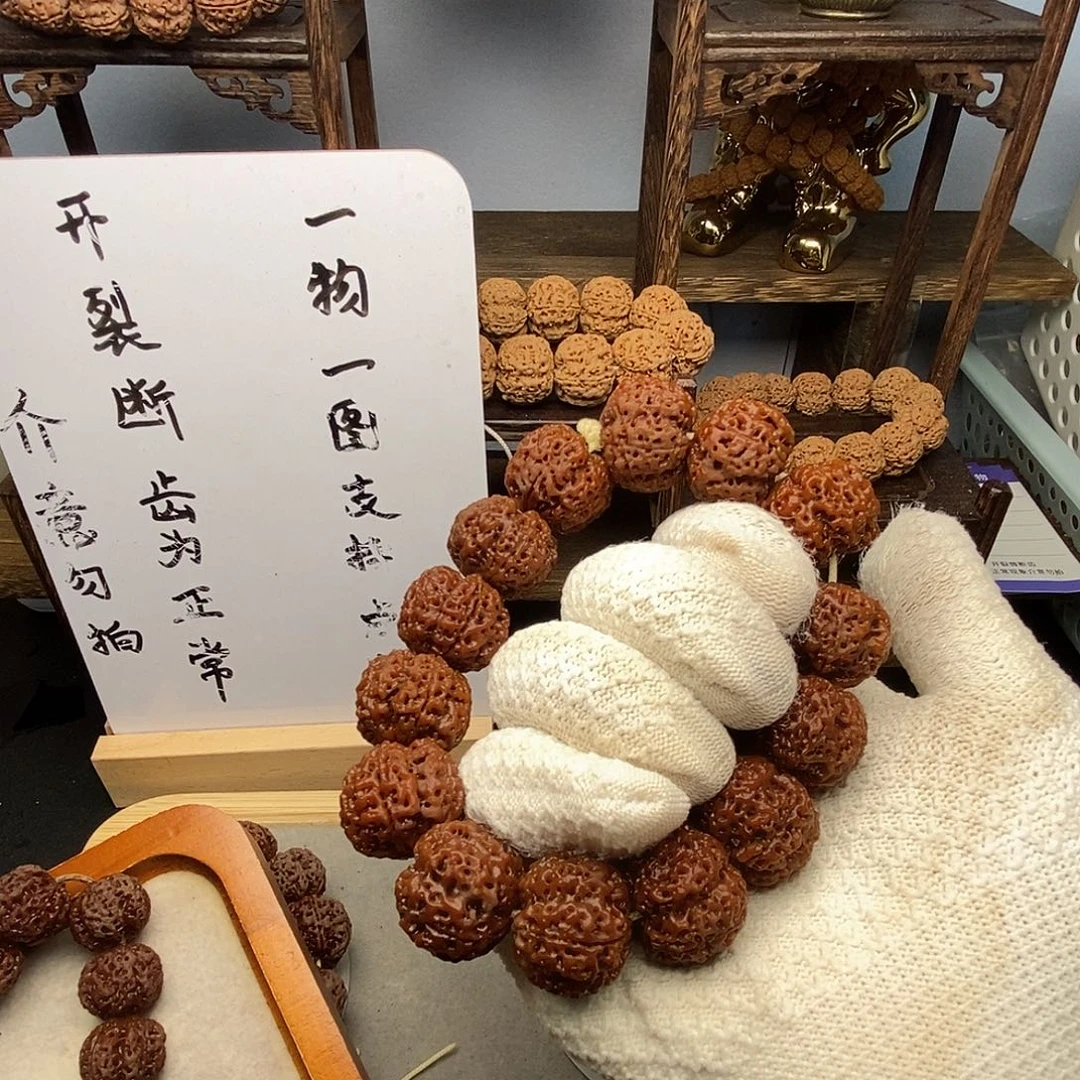 一物一图支持
开裂断齿为正常
介意勿拍